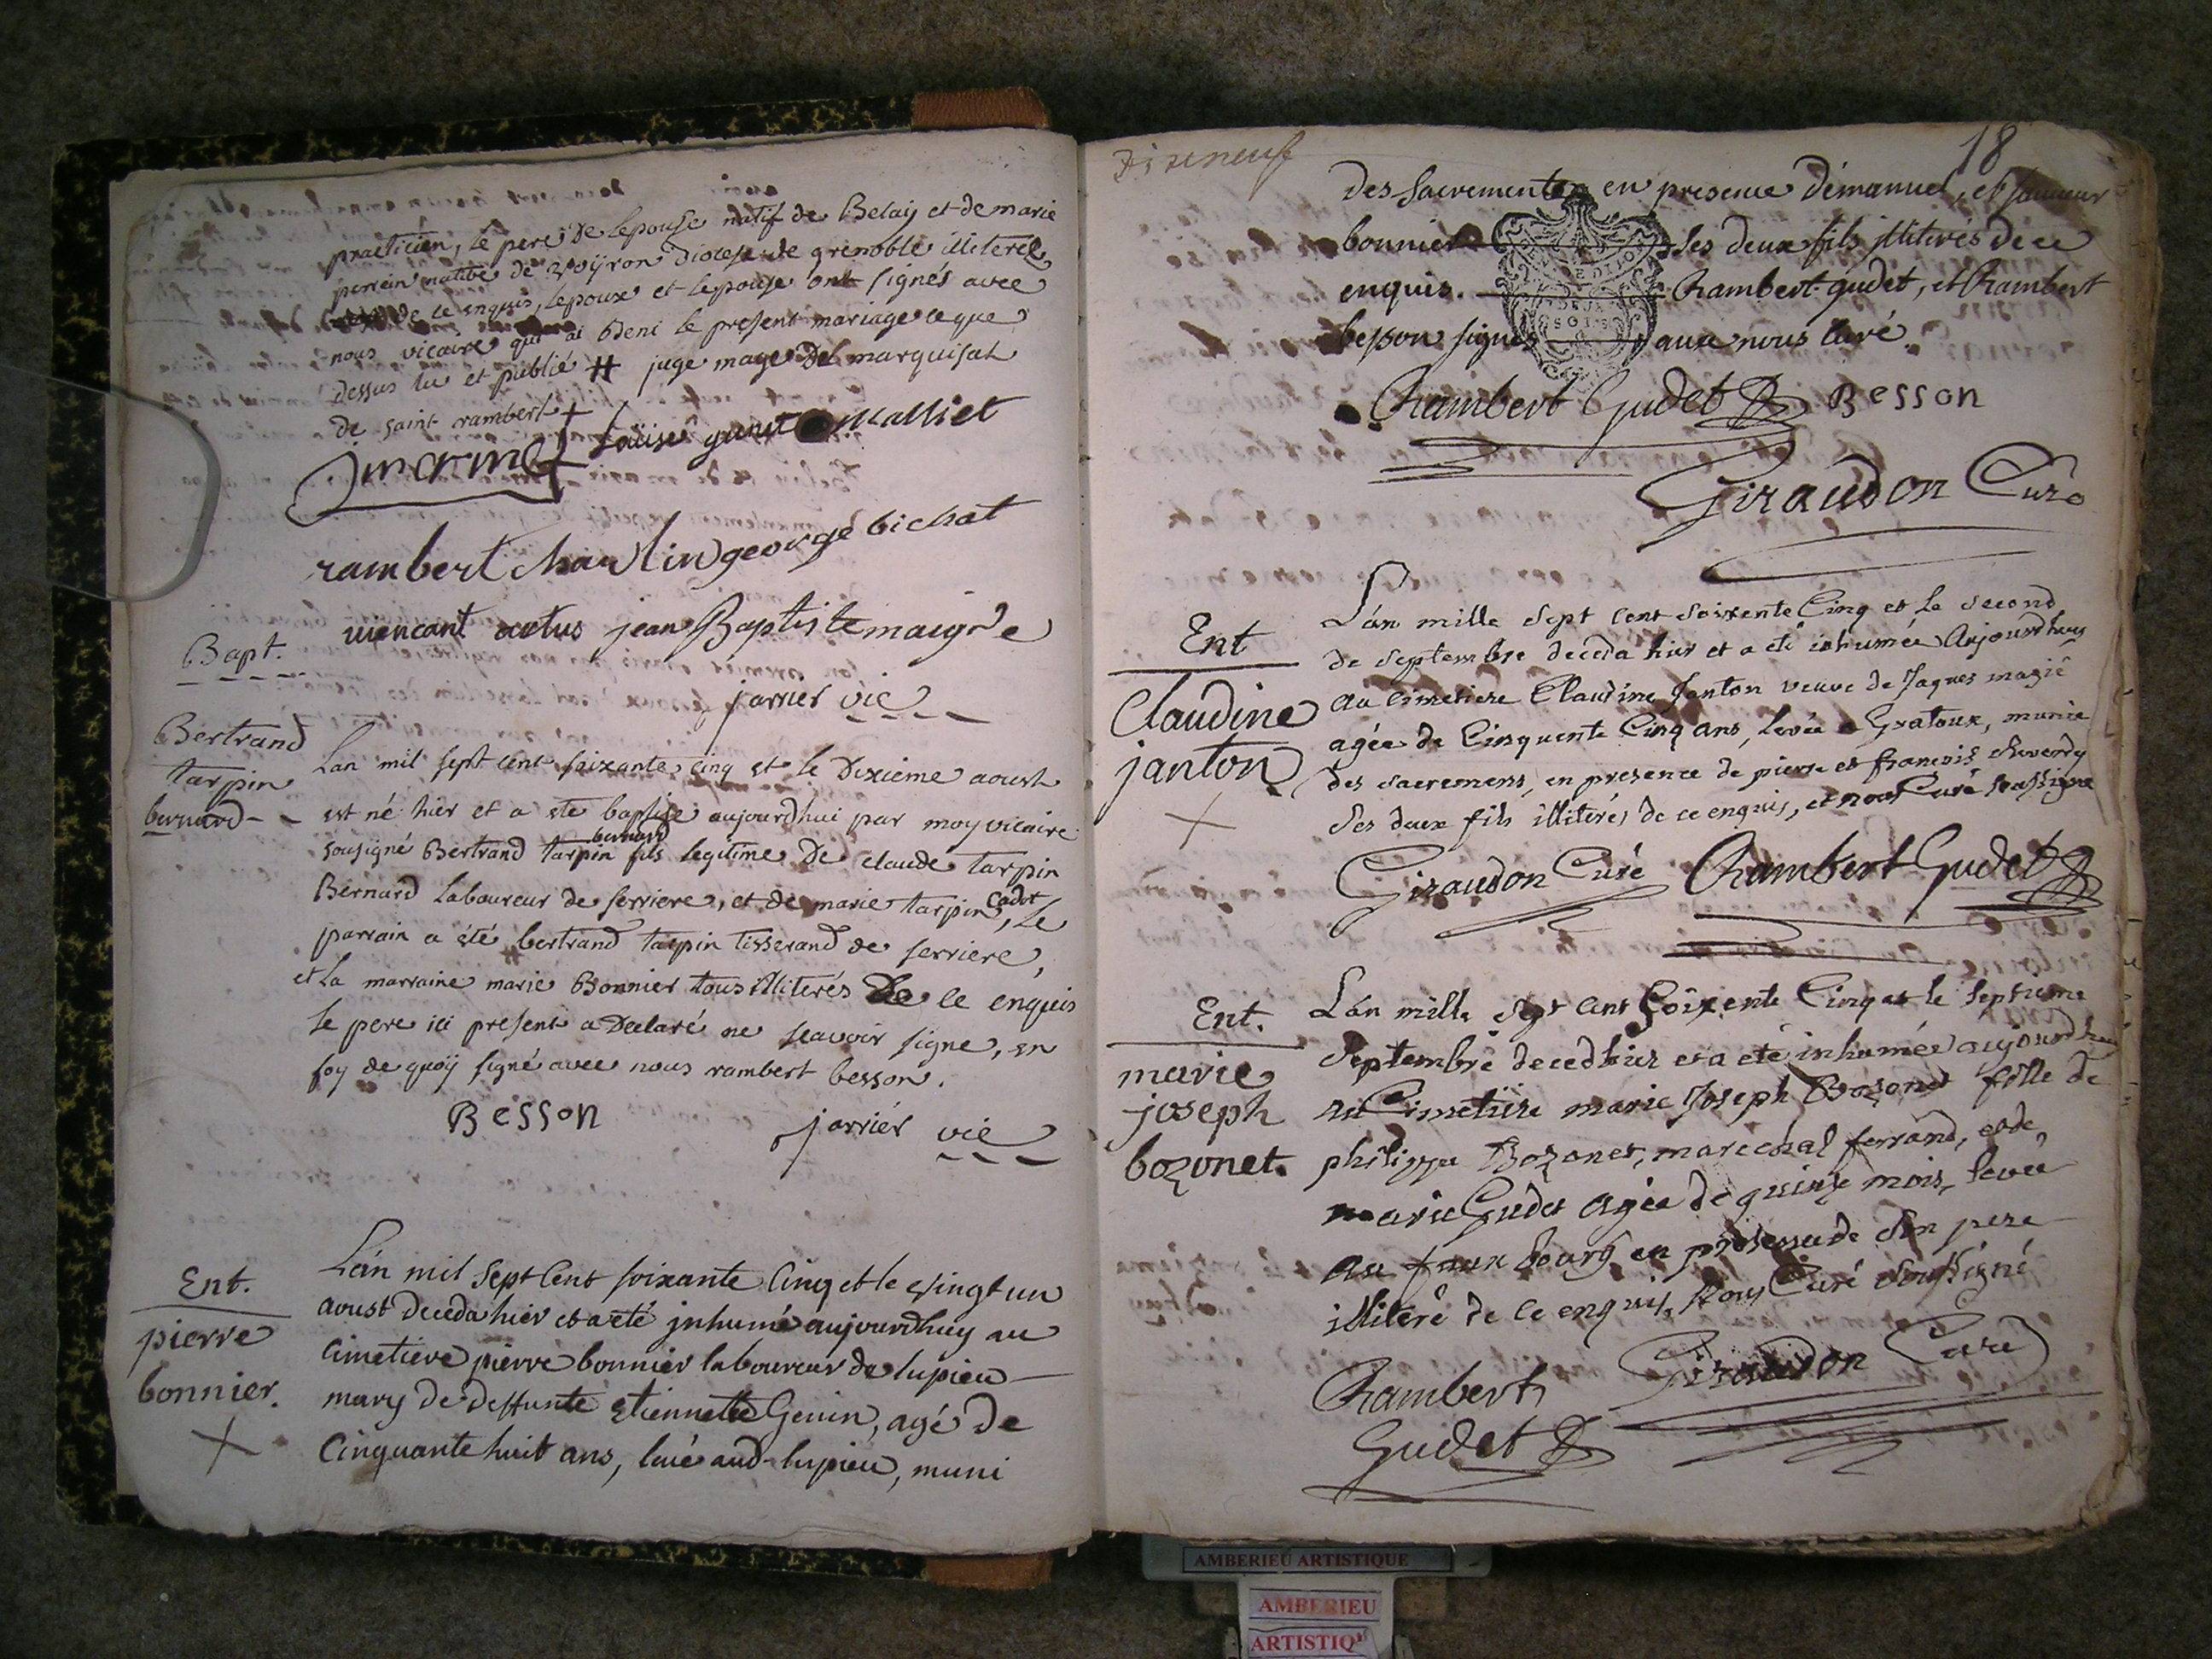 practicien, le pere de lepouse natif de Belay et de marie
perrein native de Voÿron Diocese de grenoble illiterés
de ce enquis, lepoux et lepouse ont signés avec
nous vicaire qui ai beni le present mariage ce que
dessus lu et publié # juge mage del marquisat
de saint rambert +
Louise
Malliet
rambert charlin george bichat
jean Baptiste maigre
jarrier vic
Bapt.
Bertrand
tarpin
bernard
Lan mil sept cent soixante cinq et le Dixieme aoust
est né hier et a ete baptise aujourdhui par moy vicaire
bernard
sousigné Bertrand tarpin fils legitime De claude tarpin
Cadot
Bernard laboureur de serriere, et de marie tarpin, Le
parrain a été bertrand tarpin tisserand de serriere,
et la marraine marie Bonnier tous illiterés De ce enquis
le pere ici present a Declaré ne scavoir signe, en
foy de quoÿ signé avec nous rambert besson.
Besson
jarriér vic
Ent.
pierre
bonnier.
L'an mil sept Cent soixante Cinq et le vingt un
aoust deceda hier et a eté jnhumé aujourdhuy au
cimetiere pierre bonnier laboureur de lupieu
mary de deffunte etiennette Genin, agé de
Cinquante huit ans, levé aud. lupieu, muni
18
Dixneuf
des Sacrements en presence d'émanuel, et
bonnier ses deux fils jlliterés de ce
enquis. Rambert gudet, et Rambert
besson signés avec nous Curé.
Rambert Gudet Besson
Giraudon Curé
Ent
Claudine
janton
L'an mille sept cent soixente Cinq et le second
de septembre deceda hier et a eté inhumée Aujourdhuy
au cimetiere Claudine Janton veuve de Jaques magié
agée de Cinquente Cinq ans, levée a Gratoux, munie
des sacremens, en presence de pierre et francois
ses deux fils illiterés de ce enquis, et nous Curé soussigné
Giraudon Curé Rambert Gudet
Ent.
marie
joseph
bozonet.
L'an mille sept cent soixente Cinq et le septieme
septembre deced hier et a eté inhumée aujourdhuy
au Cimetiere marie Joseph Bozonet fille de
philippe Bozonet, marechal ferrand, et de
marie Gudet agée de quinze mois, levée
au faux bourg en presence de son pere
illiteré de ce enquis, Nous Curé soussigné
Rambert Giraudon Curé
Gudet
AMBERIEU ARTISTIQUE
AMBERIEU
ARTISTIQ